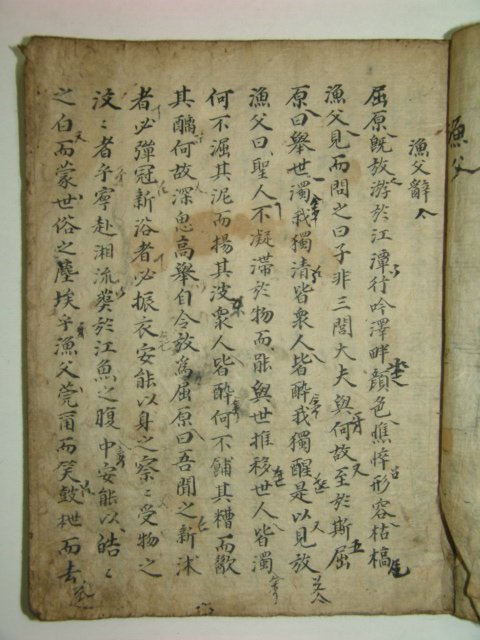 漁父
漁父辭
屈原旣放游於江潭行吟澤畔顔色憔悴形容枯槁
漁父見而問之曰子非三閭大夫與何故至於斯屈
原曰舉世濁我獨清皆衆人皆醉我獨醒是以見放
漁父曰聖人不凝滯於物而能與世推移世人皆濁
何不淈其泥而揚其波衆人皆醉何不餔其糟而歠
其醨何故深思高舉自令放爲屈原曰吾聞之新沐
者必彈冠新浴者必振衣安能以身之察〻受物之
汶〻者乎寧赴湘流葬於江魚之腹中安能以皓〻
之白而蒙世俗之塵埃乎漁父莞爾而笑鼓枻而去